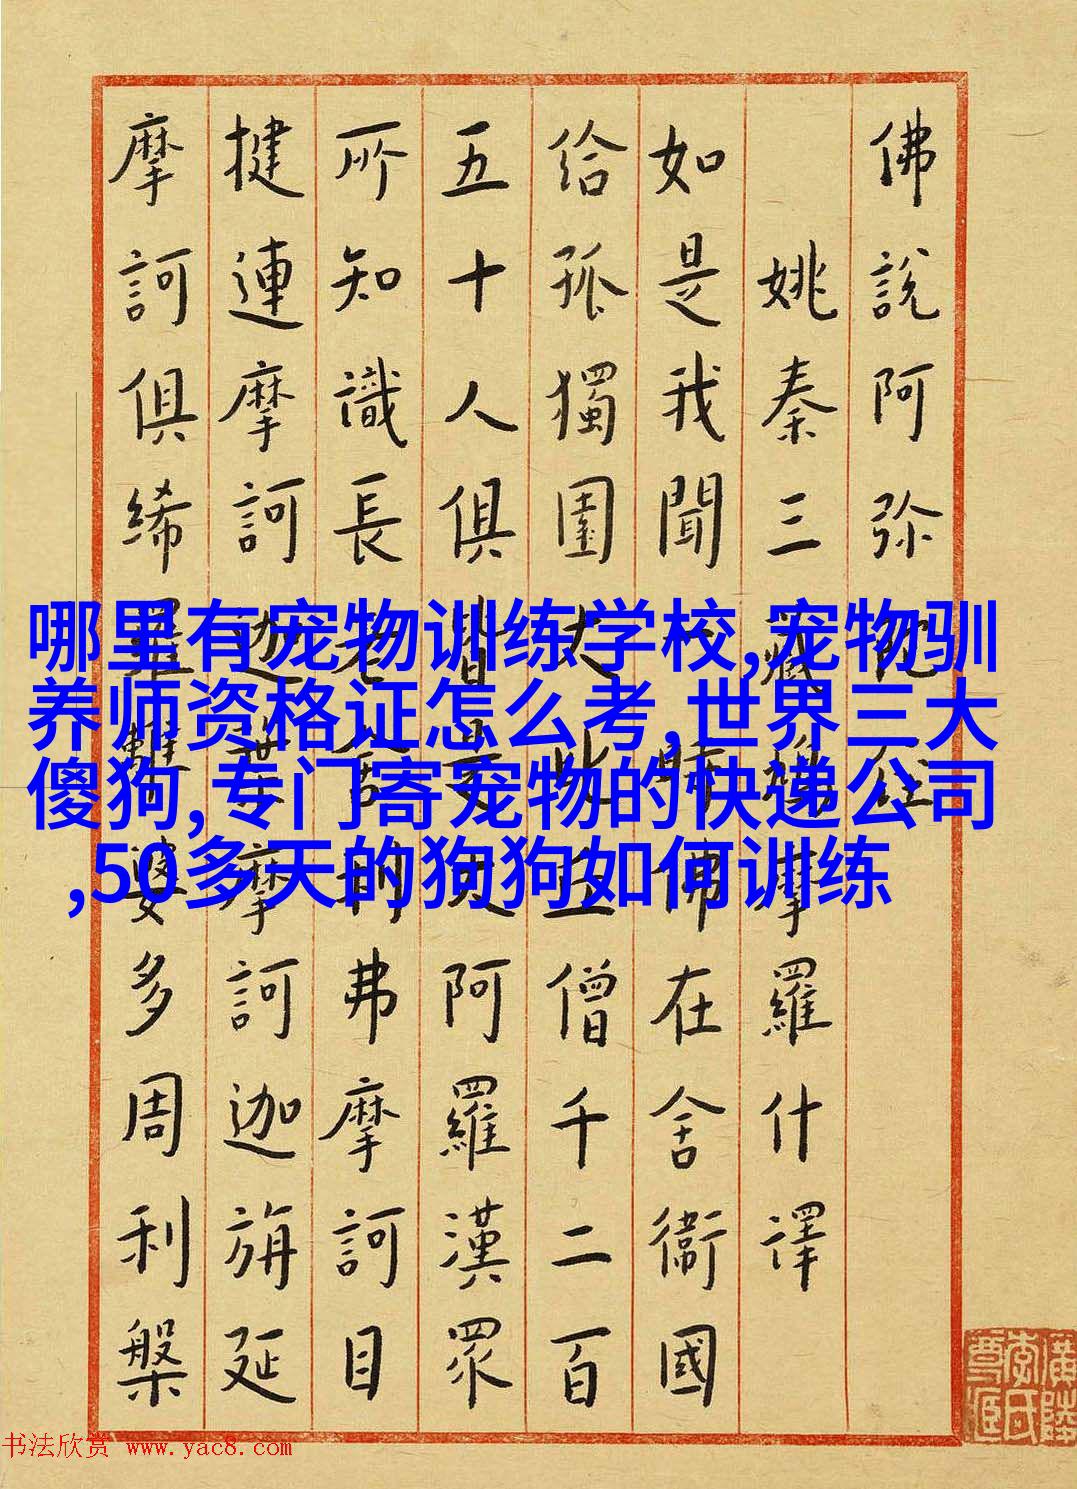 佛說阿弥陀经
姚秦三藏鳩摩羅什譯
如是我聞一時佛在舍衛國
给孤獨園大比丘僧千二百
五十人俱皆是大阿羅漢眾
所知識長老舍利弗摩訶目
揵連摩訶迦葉摩訶迦旃延
摩訶俱絺羅離婆多周利槃
哪里有宠物训练学校,宠物驯
养师资格证怎么考,世界三大
傻狗,专门寄宠物的快递公司
,50多天的狗狗如何训练
书法欣赏 www.yac8.com